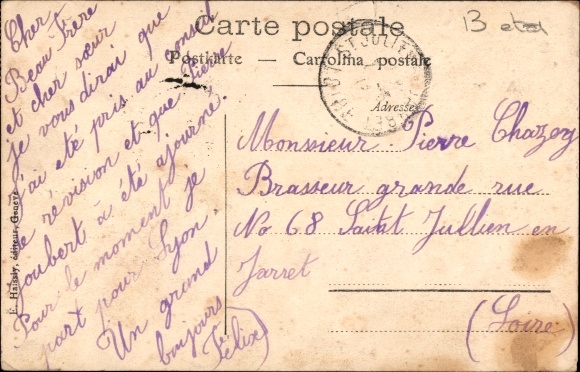 Carte postale
Postkarte — Cartolina postale
Adresse
13
ST JULIEN
E. Haissly, éditeur, Genève
Cher
Beau Frère
et cher sœur
Je vous dirai que
j'ai eté pris au conseil
de révision et que Pierre
Joubert à été ajourné.
Pour le moment je
part pour Lyon.
Un grand
bonjours
Félix
Monsieur Pierre Chazey
Brasseur grande rue
No 68 Saint Jullien en
Jarret
(Loire)